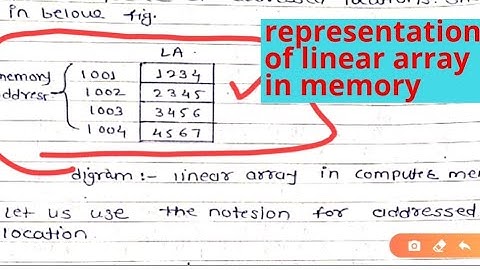 in belowe fig.
representation
of linear array
in memory
LA
memory
address
1001 1234
1002 2345
1003 3456
1004 4567
digram :- linear array in compute
Let us use the notesion for addressed
location